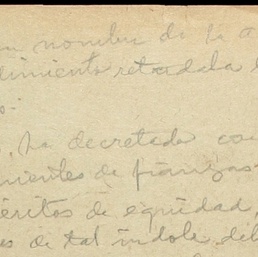 n nombre de la a
dimiento retardaba l
o.
, ha decretado co
nientes de fianzas
éritos de equidad,
es de tal índole, del